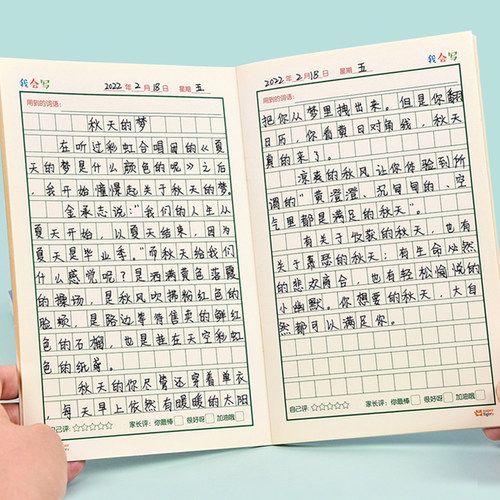 我会写
2022 年 2 月 18 日 星期 五
用到的词语:
秋天的梦
在听过彩虹合唱团的《夏
天的梦是什么颜色的呢》之后
,我开始憧憬起关于秋天的梦。
金承志说:“我们的人生从
夏天开始,以夏天结束,因为
夏天是毕业季。”而秋天给我们
什么感觉呢?是洒满黄色落霞
的操场,是秋风吹拂粉红色的
脸颊,是路边零售卖的鲜红
色的石榴,也是挂在天空彩虹
色的纸鸢。
秋天的你尽管还穿着单衣
,每天早上依然有暖暖的太阳
自己评: ☆☆☆☆☆☆ 家长评: 你最棒 很好呀 加油哦
我会写
2022 年 2 月 18 日 星期 五
用到的词语:
把你从梦里拽出来。但是你翻
日历,你看黄日对角线,秋天
真的来了。
凉爽的秋风让你体验到所
谓的“黄澄澄、沉甸甸的、空
气里都是满足的秋天”。
有关于收获的秋天,也有
关于萧瑟的秋天;有生命必然
的悲欢离合,也有轻松愉悦的
小幽默。你想爱的秋天,大自
然都可以满足你。
自己评: ☆☆☆☆☆☆ 家长评: 你最棒 很好呀 加油哦